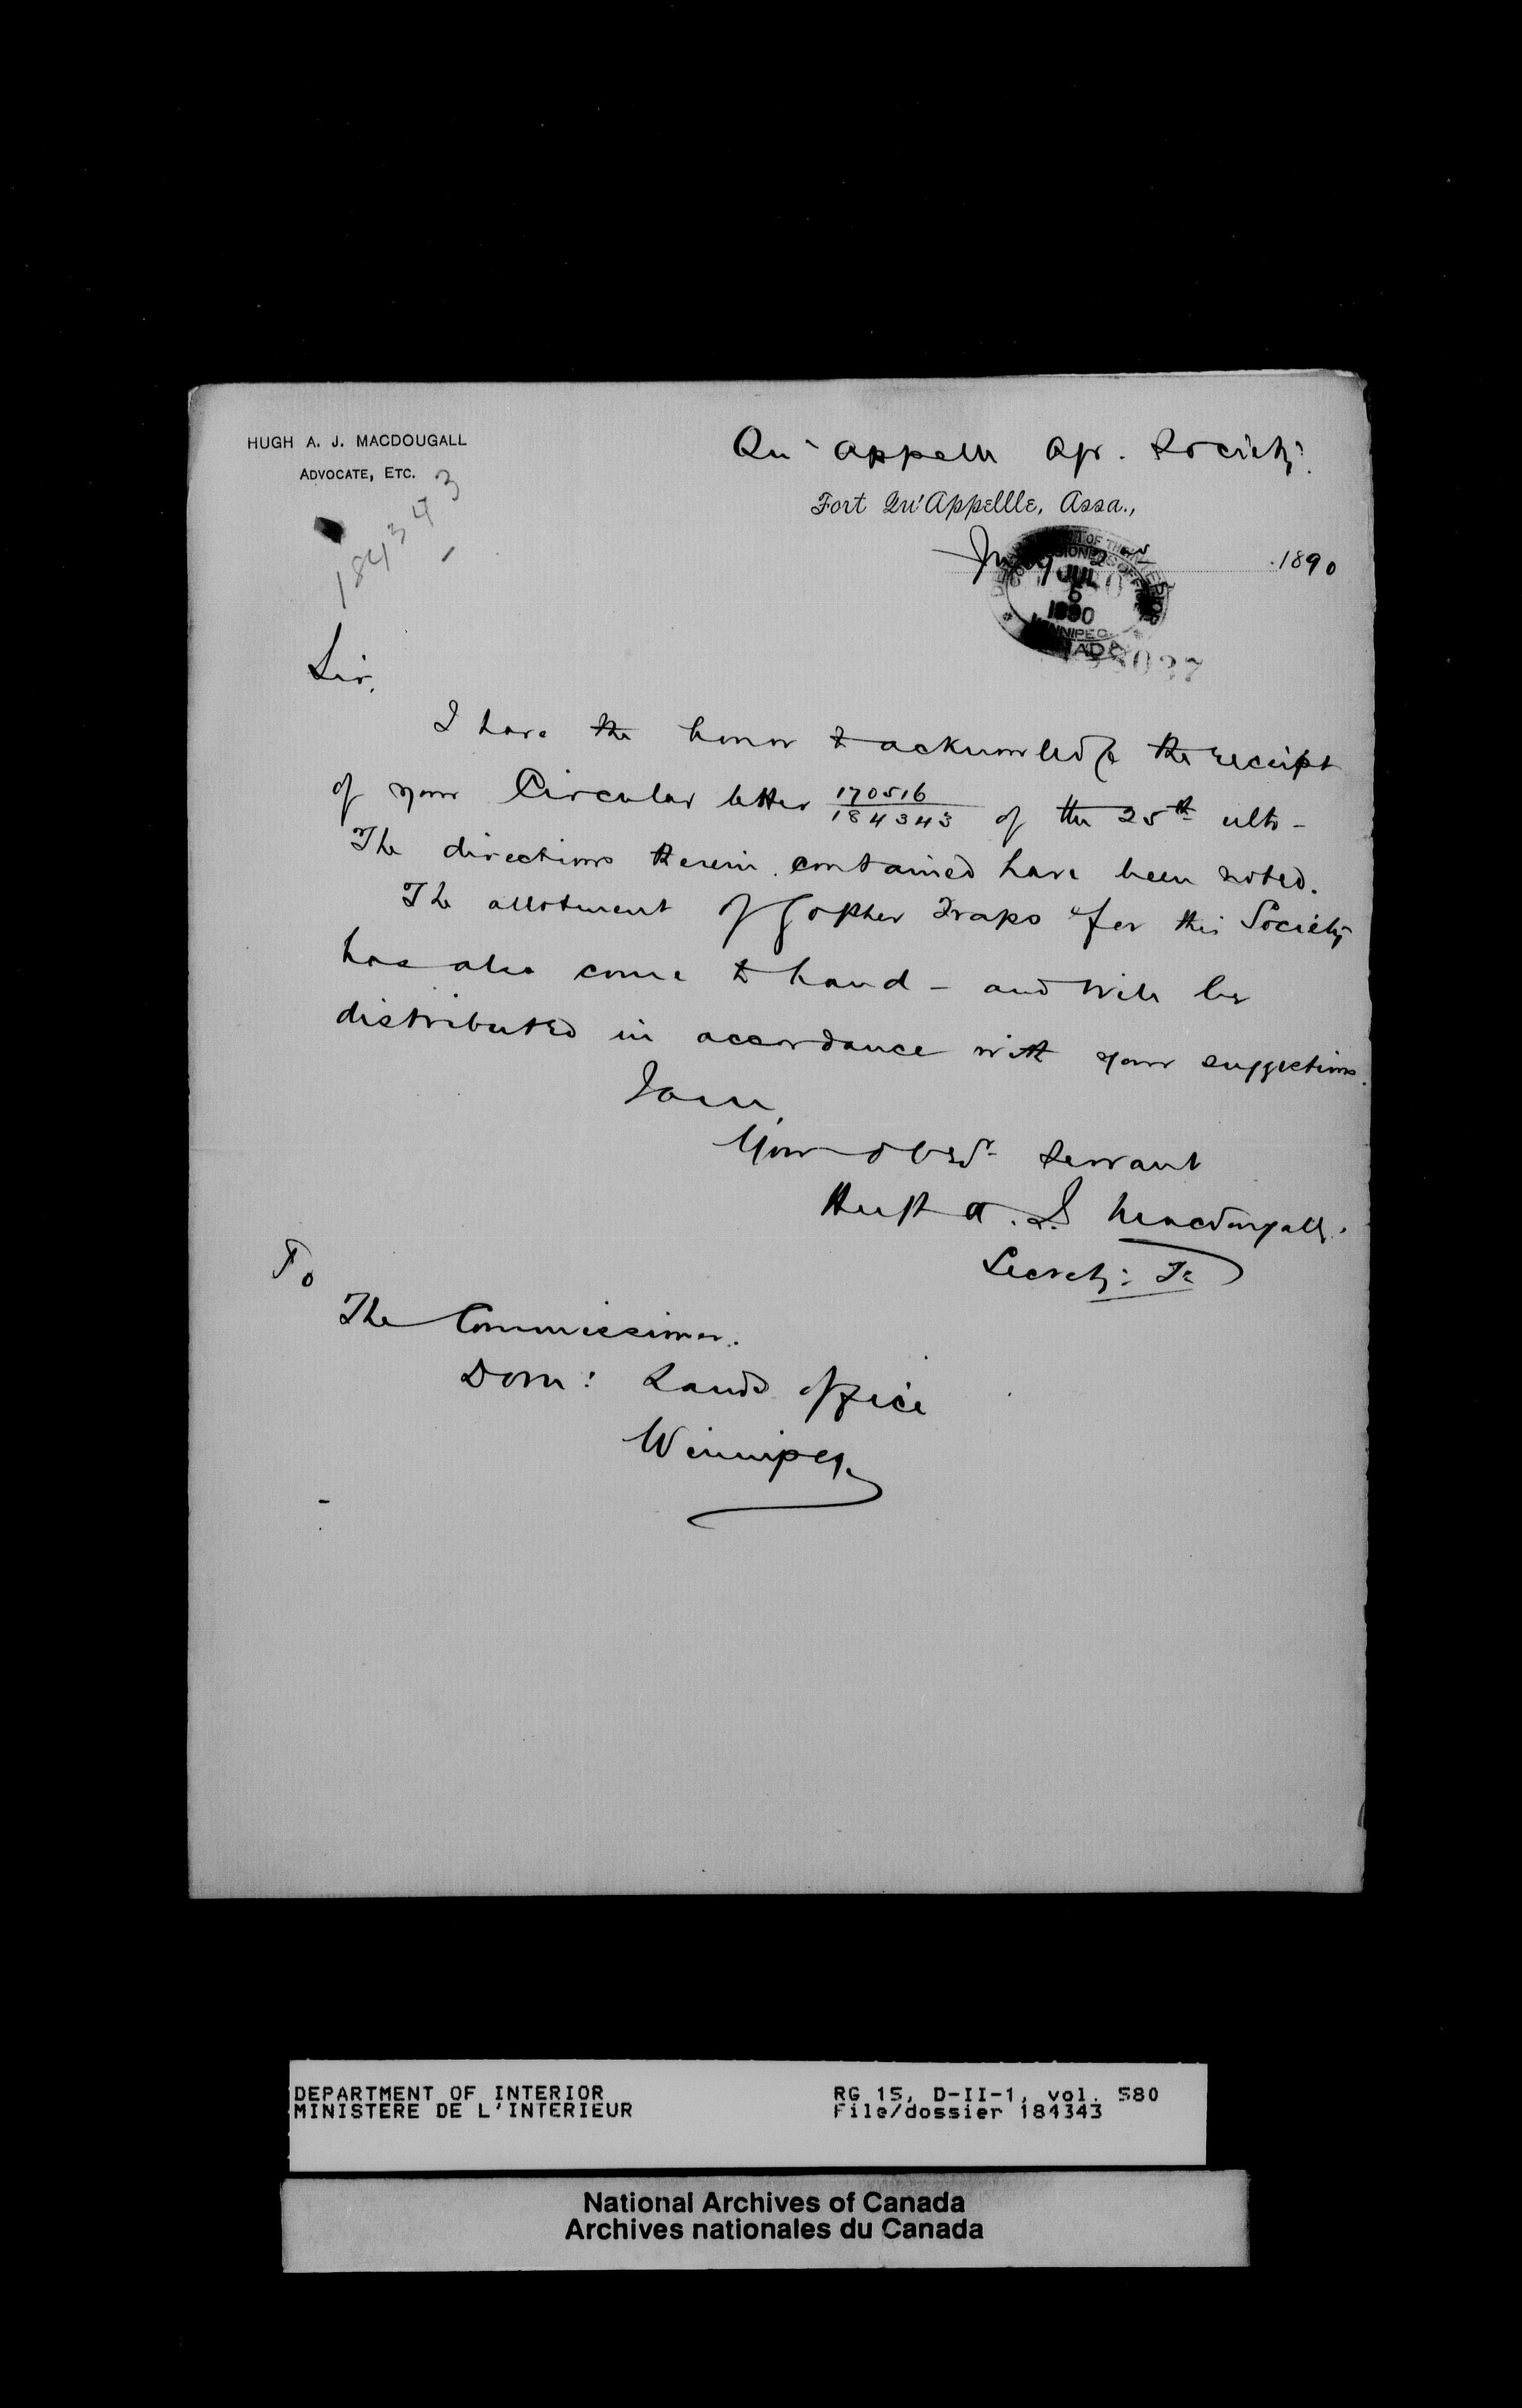 HUGH A. J. MACDOUGALL
ADVOCATE, ETC.
184343
Qu'Appelle Agr. Society.
Fort Qu'Appellle, Assa.,
1890
JUL
5
1890
WINNIPEG
Sir,
I have the honor to acknowledge the receipt
of your Circular letter 170516/184343 of the 25th ulto -
The directions therein contained have been noted.
The allotment of Gopher Traps for this Society
has also come to hand - and will be
distributed in accordance with your suggestions.
I am,
Your obedt servant
Hugh A. J. Macdougall.
Secrety: Tr
To
The Commissioner.
Dom: Lands office
Winnipeg.
DEPARTMENT OF INTERIOR
MINISTERE DE L'INTERIEUR
RG 15, D-II-1, vol. 580
File/dossier 184343
National Archives of Canada
Archives nationales du Canada